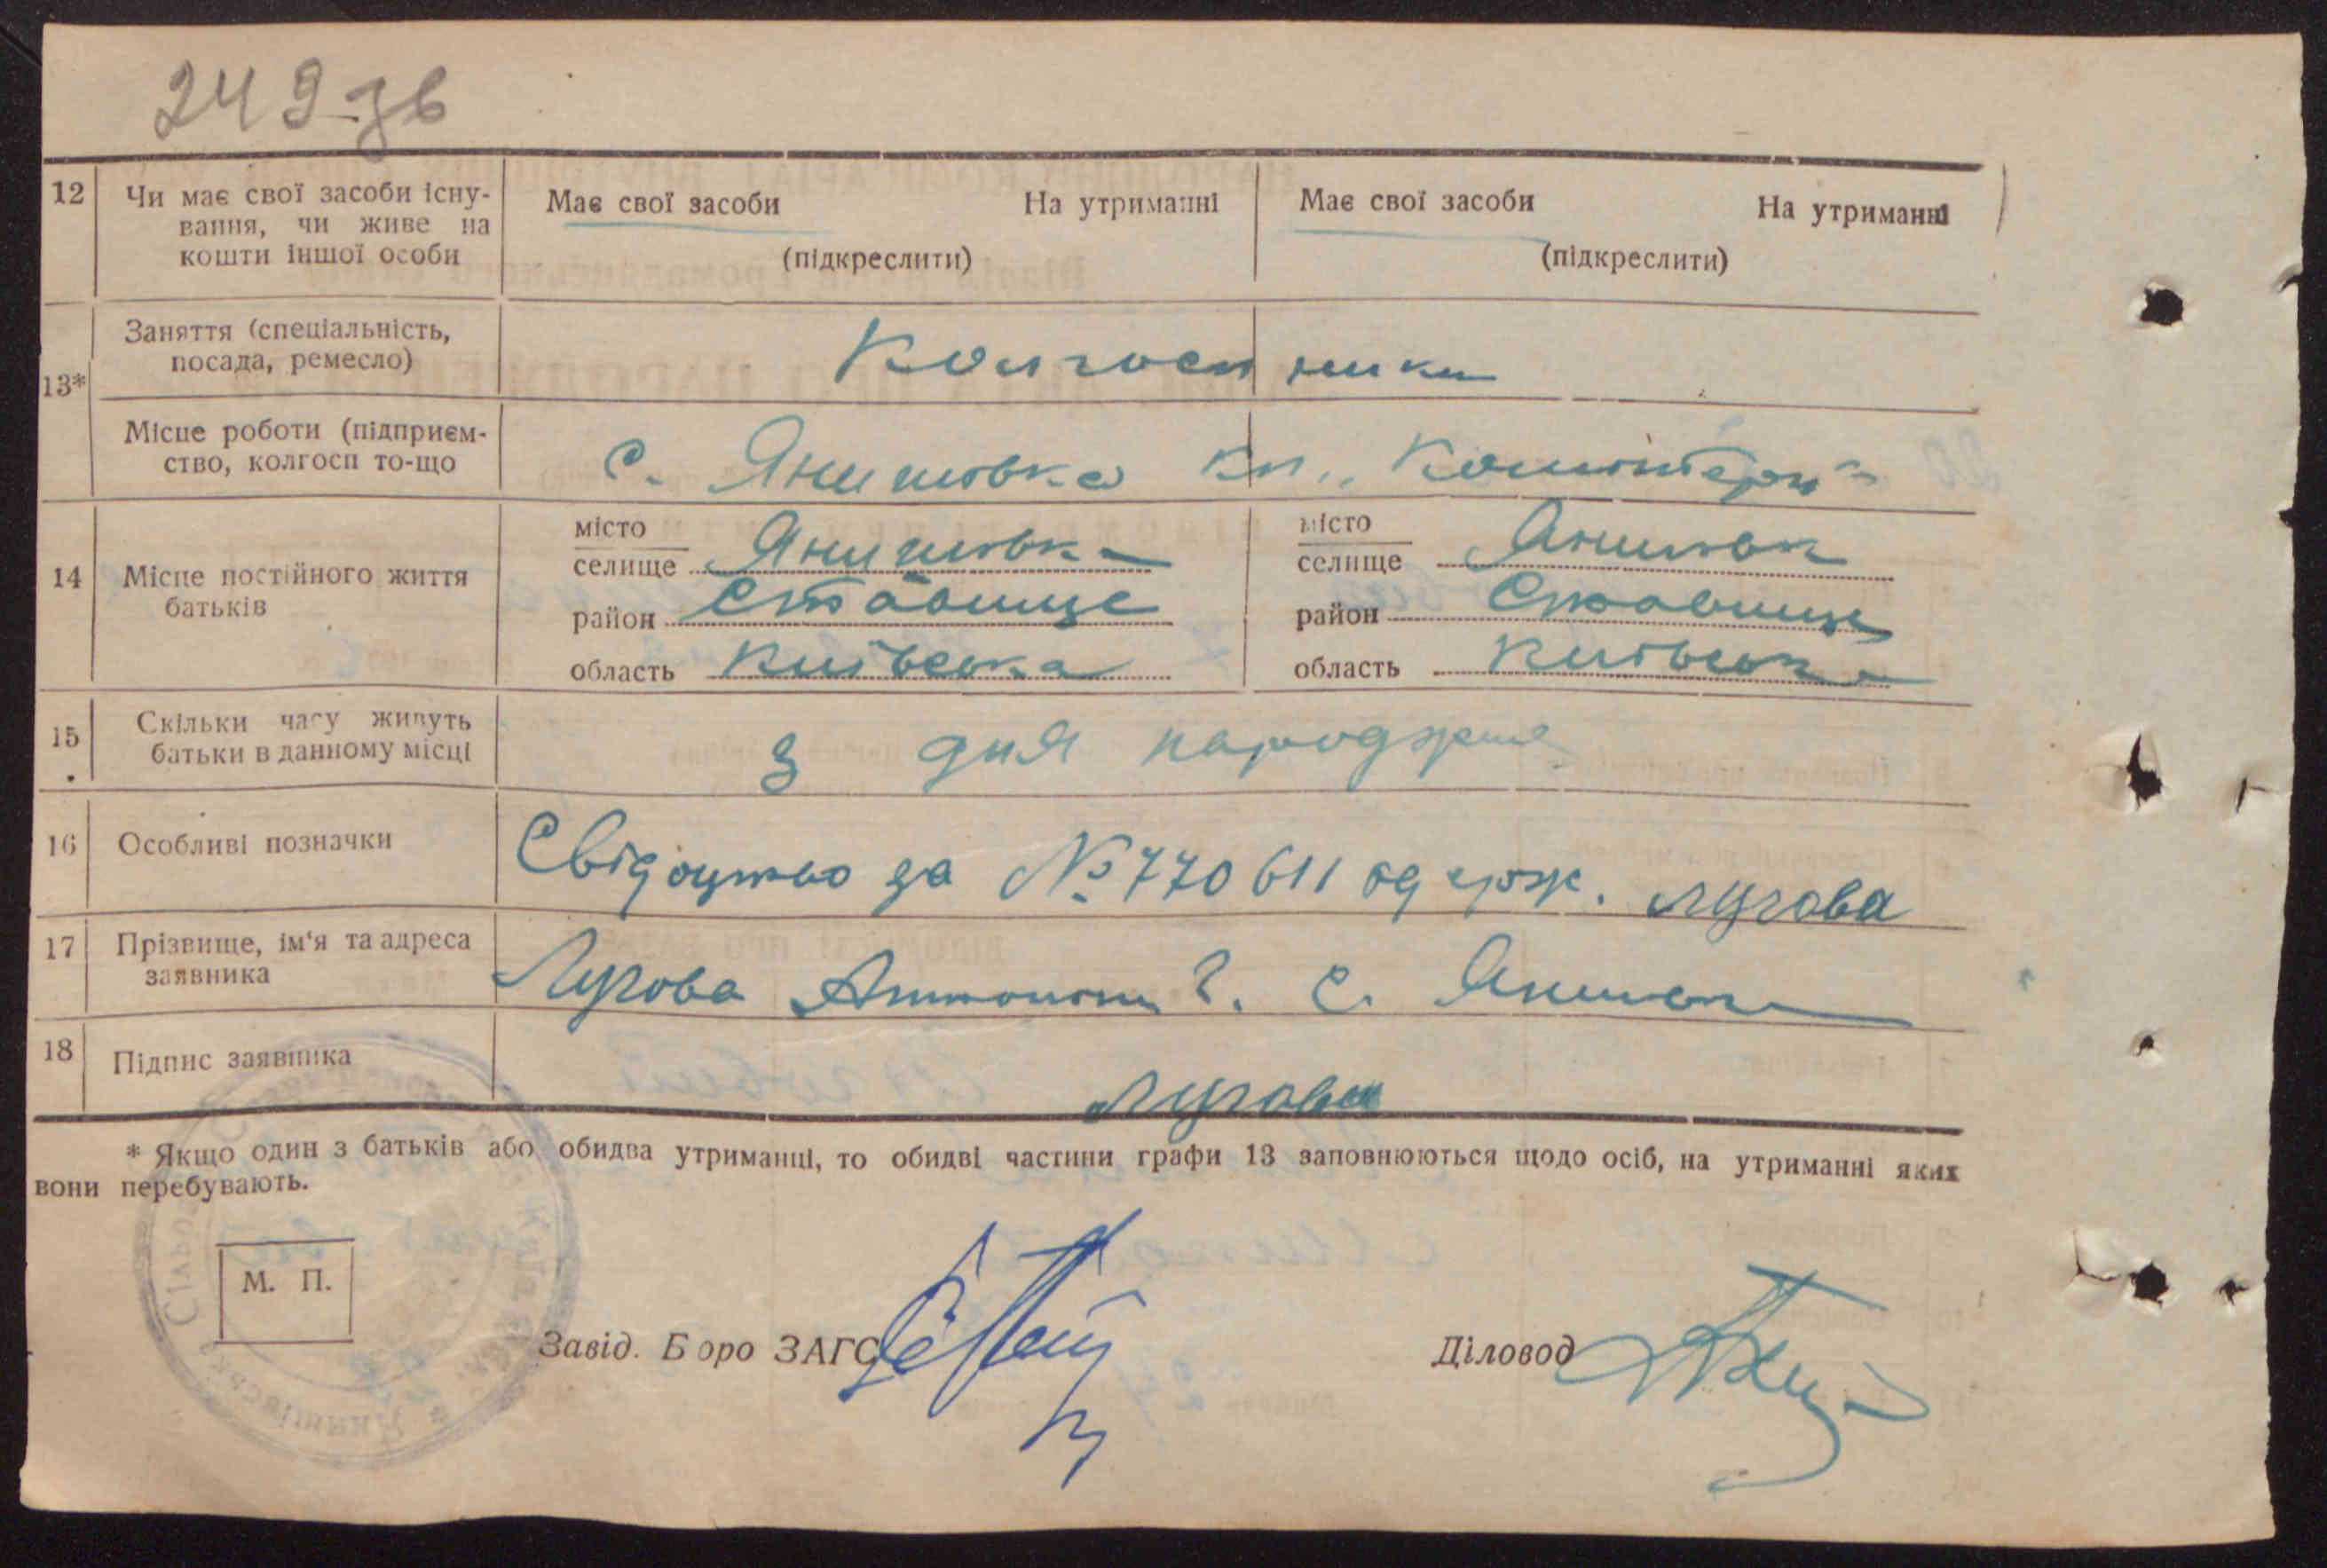 249-зв
12 Чи має свої засоби існу-
вання, чи живе на
кошти іншої особи
Має свої засоби На утриманні
(підкреслити)
Має свої засоби На утриманні
(підкреслити)
13*
Заняття (спеціальність,
посада, ремесло)
Колгоспники
Місце роботи (підприєм-
ство, колгосп то-що
с. Янишовка кл. „Комінтерн"
14 Місце постійного життя
батьків
місто
селище Янишовка
район Ставище
область Київська
місто
селище Янишовк
район Ставище
область Київська
15 Скільки часу живуть
батьки в данному місці
з дня народження
16 Особливі позначки
Свідоцтво за № 770611 одерж. Лугова
17 Прізвище, ім'я та адреса
заявника
Лугова с.
18 Підпис заявника
Лугова
* Якщо один з батьків або обидва утриманці, то обидві частини графи 13 заповнюються щодо осіб, на утриманні яких
вони перебувають.
М. П.
Завід. Бюро ЗАГС
Діловод